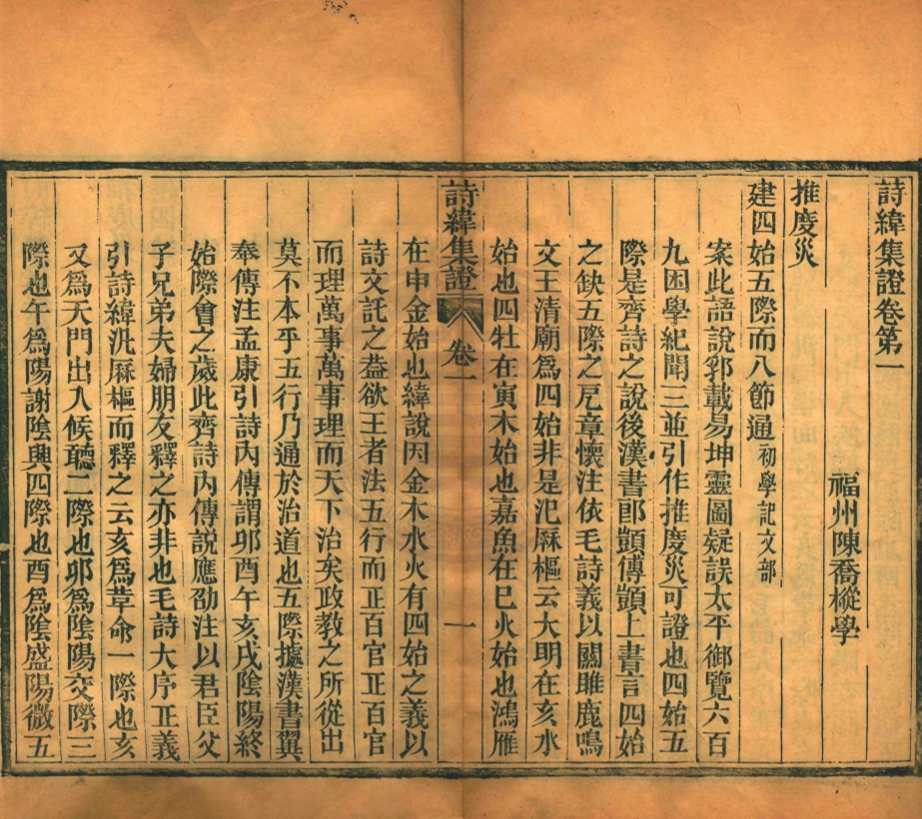 詩緯集證卷第一
福州陳喬樅學
推度災
建四始五際而八節通初學記文部
案此語說郛載易坤靈圖疑誤太平御覽六百
九困學紀聞三並引作推度災可證也四始五
際是齊詩之說後漢書郎顗傳顗上書言四始
之缺五際之戹章懷注依毛詩義以關雎鹿鳴
文王清廟爲四始非是汜厤樞云大明在亥水
始也四牡在寅木始也嘉魚在巳火始也鴻雁
詩緯集證 卷一 一
在申金始也緯說因金木水火有四始之義以
詩文託之葢欲王者法五行而正百官正百官
而理萬事萬事理而天下治矣政教之所從出
莫不本乎五行乃通於治道也五際據漢書翼
奉傳注孟康引詩內傳謂卯酉午亥戌陰陽終
始際會之歲此齊詩內傳說應劭注以君臣父
子兄弟夫婦朋友釋之亦非也毛詩大序正義
引詩緯汎厤樞而釋之云亥爲革命一際也亥
又爲天門出入候聽二際也卯爲陰陽交際三
際也午爲陽謝陰興四際也酉爲陰盛陽微五